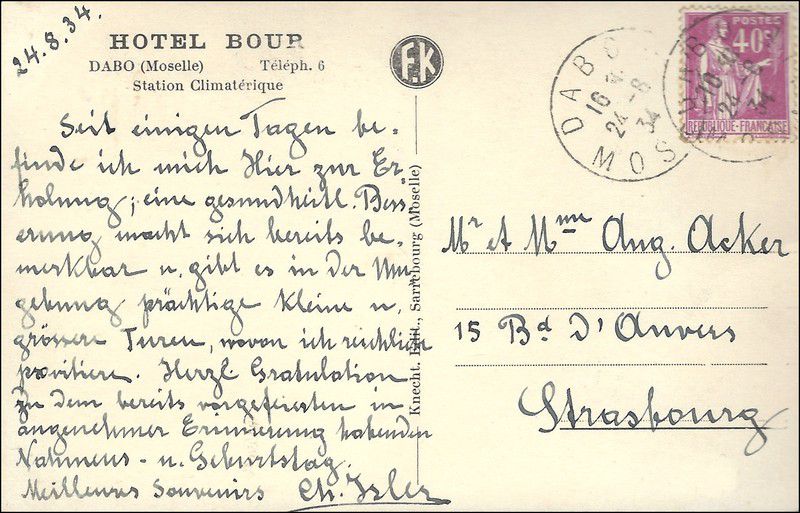 24.8.34.
HOTEL BOUR
DABO (Moselle) Téléph. 6
Station Climatérique
F.K
DABO
16 24 -8 34
MOS
POSTES
40c
REPUBLIQUE-FRANÇAISE
Seit einigen Tagen be-
finde ich mich Hier zur Er-
holung, eine gesundheitl. Bess-
erung macht sich bereits be-
merkbar u. gibt es in der Um-
gebung prächtige kleine u.
grössere Turen, wovon ich reichlich
profitiere. Herzl. Gratulation
zu dem bereits vorgefeierten in
angenehmer Erinnerung habenden
Nahmens- u. Geburtstag.
Meilleures Souvenirs Ch. Isler
Knecht, Edit., Sarrebourg (Moselle)
Mr et Mme Aug. Acker
15 Bd D'Anvers
Strasbourg